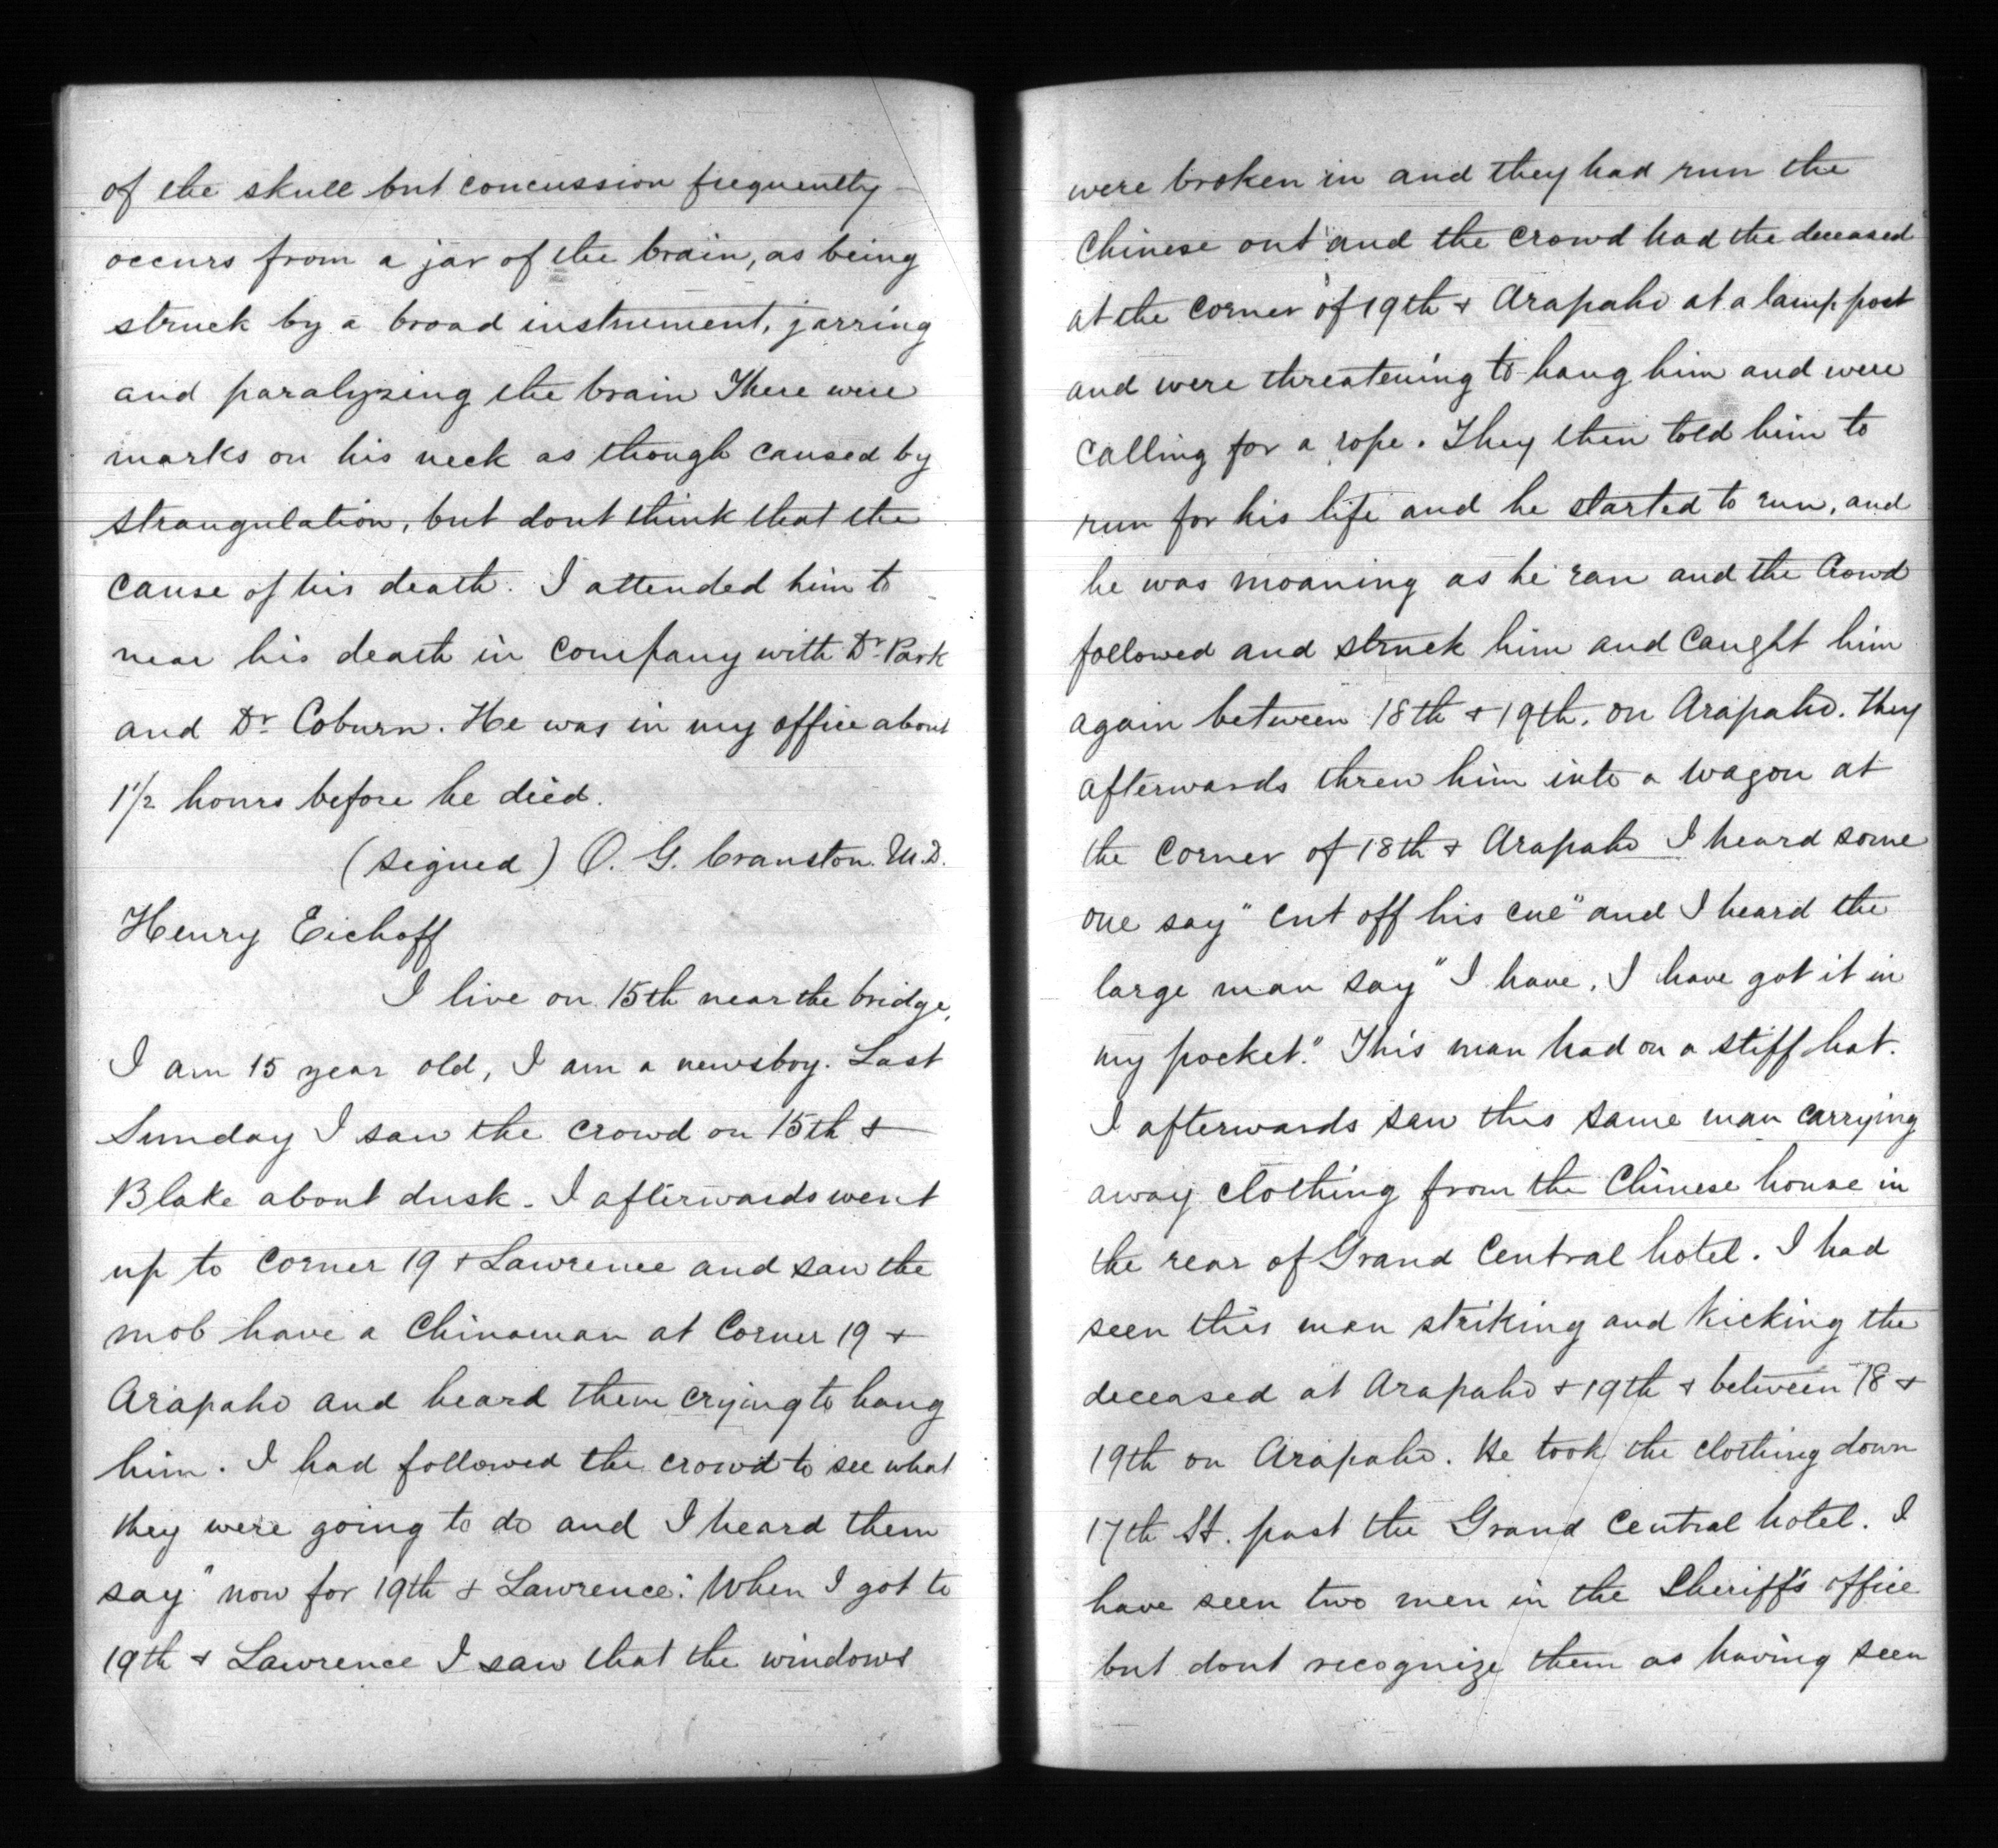 of the skull but concussion frequently
occurs from a jar of the brain, as being
struck by a broad instrument, jarring
and paralyzing the brain There were
marks on his neck as though caused by
strangulation, but dont think that the
cause of his death. I attended him to
near his death in company with Dr. Park
and Dr. Coburn. He was in my office about
1 1/2 hours before he died.
(signed) O. G. Cranston. M.D.
Henry Eichoff
I live on 15th near the bridge,
I am 15 year old, I am a newsboy. Last
Sunday I saw the crowd on 15th &
Blake about dusk. I afterwards went
up to corner 19 & Lawrence and saw the
mob have a Chinaman at corner 19 &
Arapaho and heard them crying to hang
him. I had followed the crowd to see what
they were going to do and I heard them
say "now for 19th & Lawrence." When I got to
19th & Lawrence I saw that the windows
were broken in and they had run the
Chinese out and the crowd had the deceased
at the corner of 19th & Arapaho at a lamp post
and were threatening to hang him and were
calling for a rope. They then told him to
run for his life and he started to run, and
he was moaning as he ran and the crowd
followed and struck him and caught him
again between 18th & 19th. on Arapaho. They
afterwards threw him into a wagon at
the corner of 18th & Arapaho I heard some
one say "cut off his cue" and I heard the
large man say "I have, I have got it in
my pocket." This man had on a stiff hat.
I afterwards saw this same man carrying
away clothing from the Chinese house in
the rear of Grand Central hotel. I had
seen this man striking and kicking the
deceased at Arapaho & 19th & between 18 &
19th on Arapaho. He took the clothing down
17th St. past the Grand Central hotel. I
have seen two men in the Sheriff's office
but dont recognize them as having seen